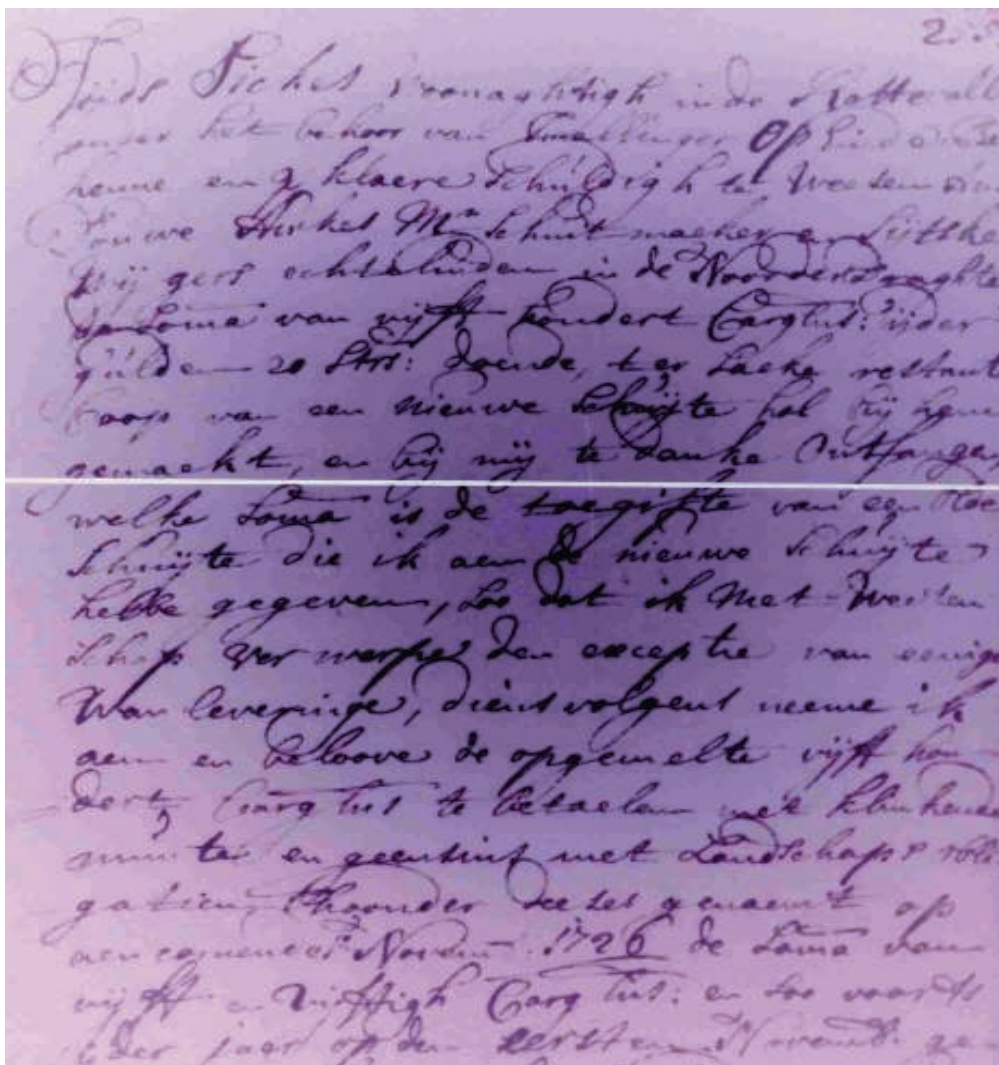 25
Foids Sickes woonagtigh in de Rottevalle
onder het behoor van Smallinger
kenne en klaere Schuldigh te weesen aen
Douwe Aukes Mr Schuitmaeker en Sijtske
echtelieden in de Noorderdraghten
de Soma van vijff hondert Cargls: ijder
gulden 20 Strs: doende, ter Saeke restant
Coop van een nieuwe Schuijte hol bij hem
gemaekt, en bij mij te danke Ontfangen
welke Soma is de toegifte van een
Schuijte die ik aen de nieuwe Schuijte
hebbe gegeven, Soo dat ik Met Weeten
Schap verwerpe den exceptie van eenige
Wan leveringe, dienstvolgent neeme ik
aen en beloove de opgemelte vijff hon
dert Cargls te betaelen met klinkende
munten en geensints met Landschaps obli
gatien, Thoonder deeses genaemt op
Novem 1726 de Soma van
vijff en vijftigh Cargls: en Soo voorts
ider jaer op den eersten Novemb: ge